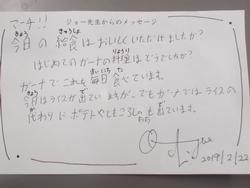 ジョー先生からのメッセージ
マーチ!!
今日の給食はおいしくいただけましたか?
はじめてのガーナの料理はどうでしたか?
ガーナでこれを毎日食べています。
今日はライスが出ていますが、でもガーナではライスの
代わりにポテトやともころしのも出ています。
2019/2/22